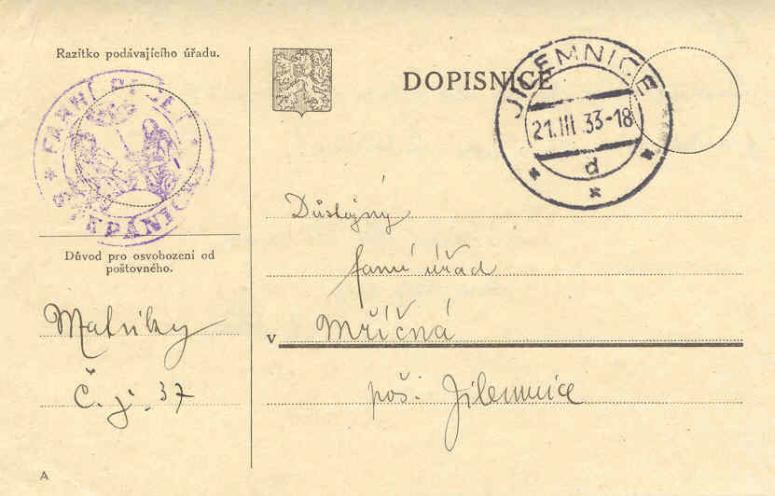 Razítko podávajícího úřadu.
FARNÍ ÚŘAD
ŠTĚPANICE
Důvod pro osvobození od
poštovného.
Matriky
Č. j. 37
A
DOPISNICE
JILEMNICE
21.III.33-18
d
Důstojný
farní úřad
v Mříčná
poš. Jilemnice